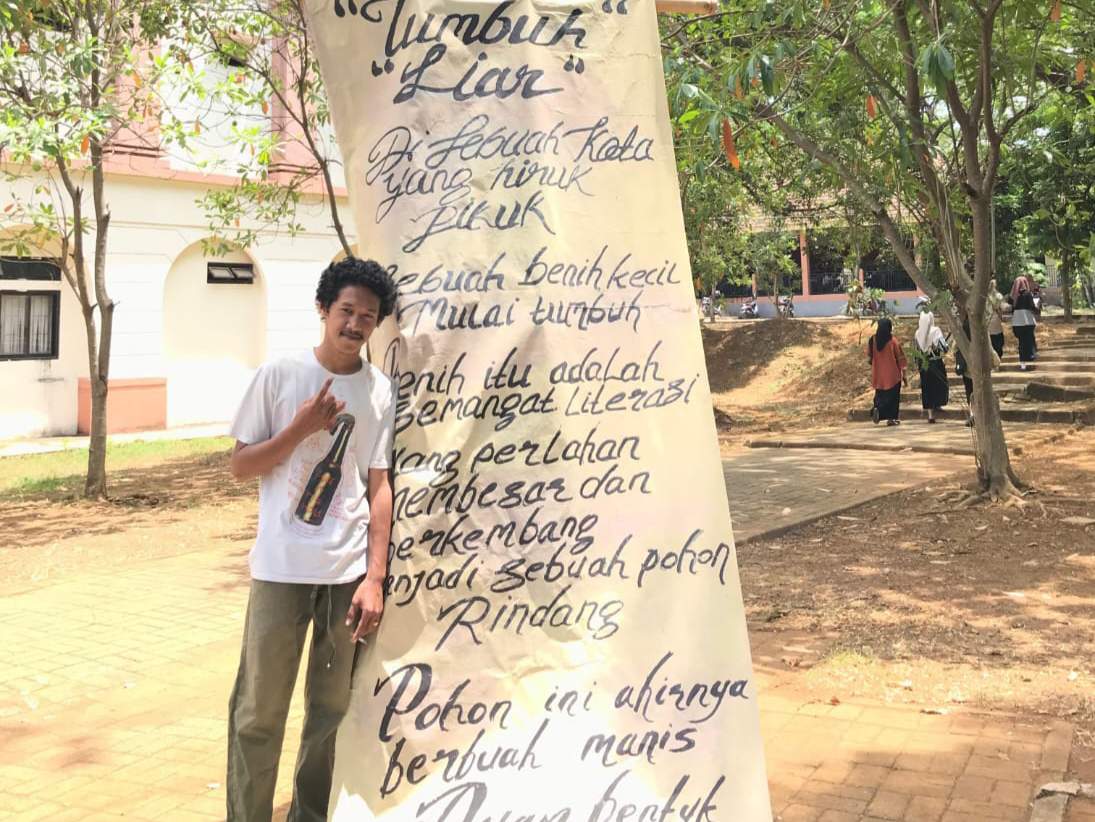 "Tumbuh"
"Liar"
Di sebuah Kota
yang hiruk
pikuk
sebuah benih kecil
Mulai tumbuh
benih itu adalah
semangat Literasi
yang perlahan
membesar dan
berkembang
enjadi sebuah pohon
Rindang
Pohon ini ahirnya
berbuah manis
bentuk